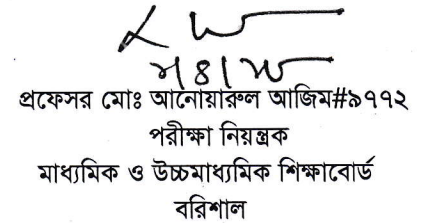 প্রফেসর মোঃ আনোয়ারুল আজিম#৯৭৭২
পরীক্ষা নিয়ন্ত্রক
মাধ্যমিক ও উচ্চমাধ্যমিক শিক্ষাবোর্ড
বরিশাল